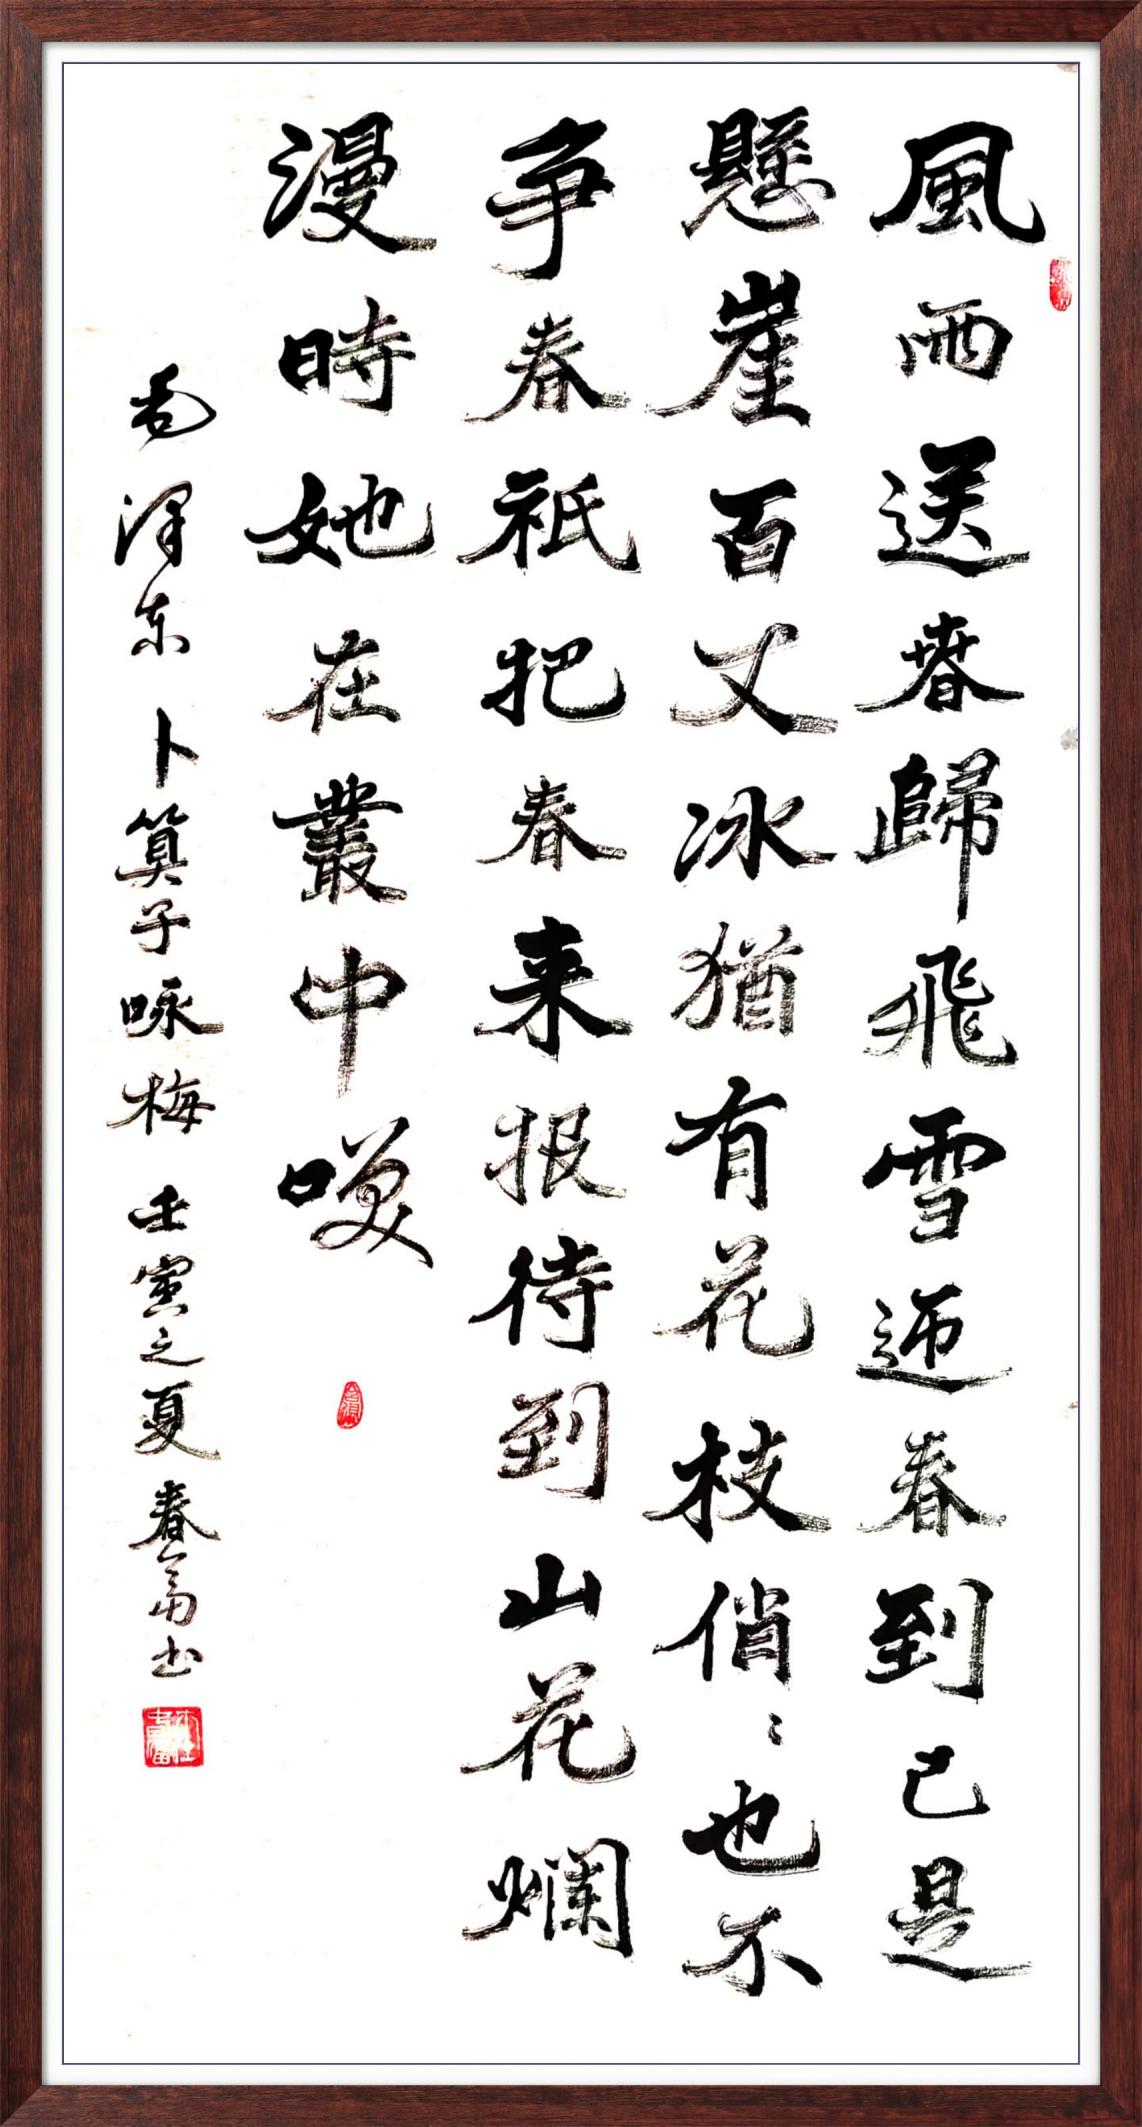 風雨送春歸飛雪迎春到已是
懸崖百丈冰猶有花枝俏〻也不
争春祇把春来报待到山花爛
漫時她在叢中笑
毛泽东 卜算子咏梅 壬寅之夏 春富书